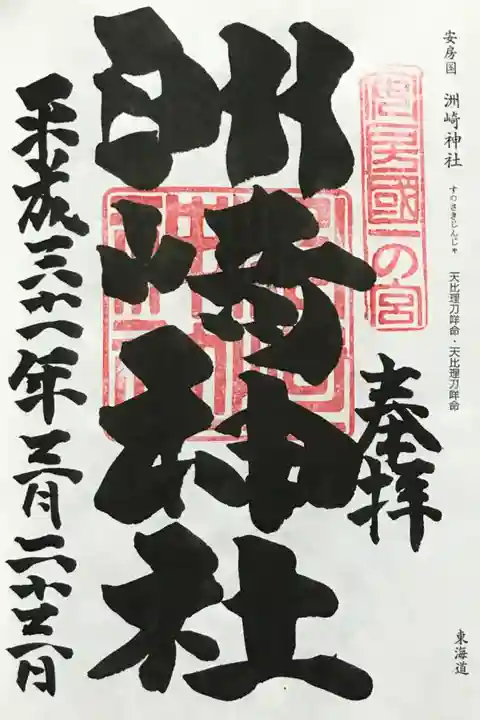 安房国 洲崎神社 すのさきじんじゃ 天比理刀咩命・天比理刀咩命
東海道
安房國一の宮
奉拝
洲崎神社
平成三十一年三月二十三日